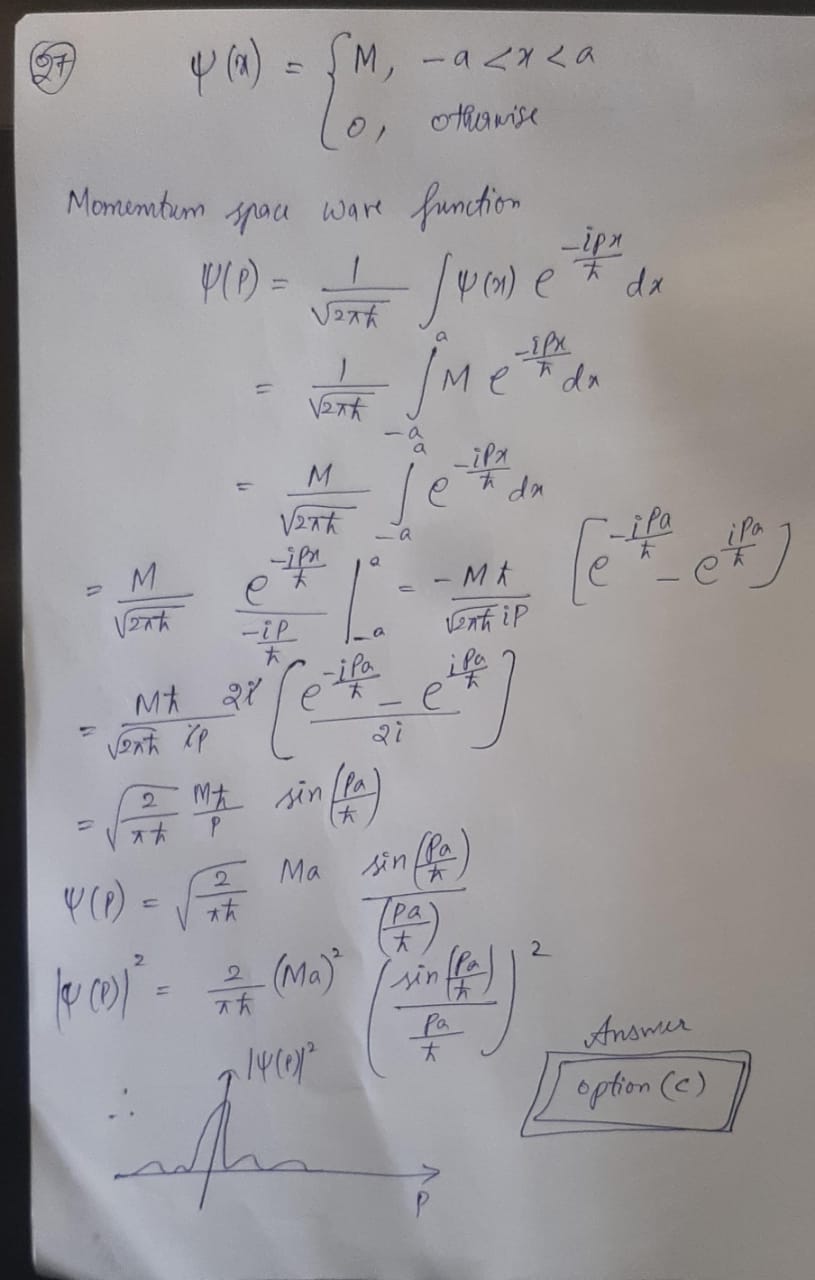 (27) ψ(x) = { M, -a < x < a
0, otherwise
Momemtum space wave function
ψ(P) = 1/√2πħ ∫ ψ(x) e^(-ipx/ħ) dx
= 1/√2πħ ∫_{-a}^{a} M e^(-iPx/ħ) dx
= M/√2πħ ∫_{-a}^{a} e^(-iPx/ħ) dx
= M/√2πħ e^(-iPx/ħ)/(-iP/ħ) |_{-a}^{a} = -Mħ/√2πħ iP [e^(-iPa/ħ) - e^(iPa/ħ)]
= Mħ/√2πħ 2i/iP [(e^(-iPa/ħ) - e^(iPa/ħ))/2i]
= √(2/πħ) Mħ/P sin(Pa/ħ)
ψ(P) = √(2/πħ) Ma sin(Pa/ħ)/(Pa/ħ)
|ψ(P)|² = 2/πħ (Ma)² (sin(Pa/ħ)/(Pa/ħ))²
Answer
option (c)
∴ |ψ(P)|²
P